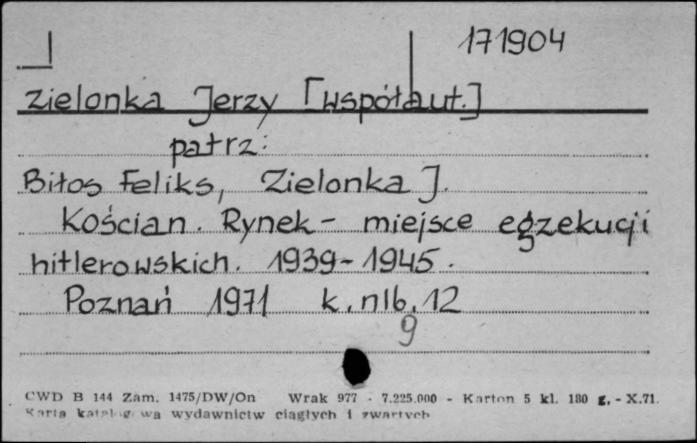 171904
Zielonka Jerzy [współaut.]
patrz:
Biłos Feliks, Zielonka J.
Kościan. Rynek - miejsce egzekucji
hitlerowskich. 1939-1945.
Poznań 1971 k. nlb. 12
9
CWD B 144 Zam. 1475/DW/On Wrak 977 - 7.225.000 - Karton 5 kl. 180 g. - X.71.
Karta katalogowa wydawnictw ciągłych i zwartych